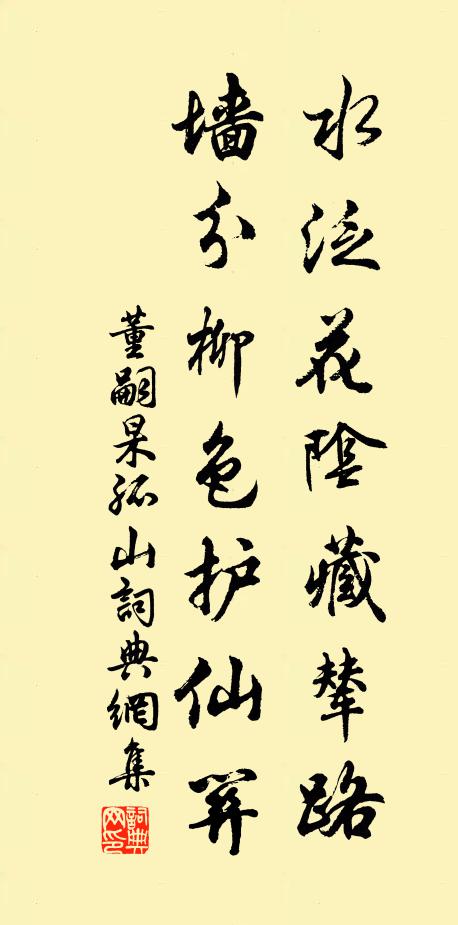 水泛花陰藏輦路
墙分柳色护仙关
董嗣杲孤山詞典網集
詞典网印